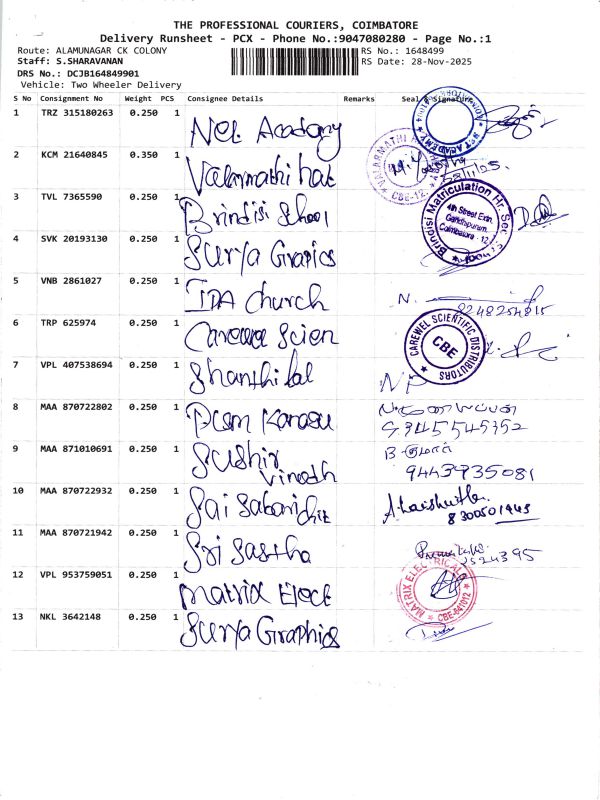 THE PROFESSIONAL COURIERS, COIMBATORE
Delivery Runsheet - PCX - Phone No.:9047080280 - Page No.:1
Route: ALAMUNAGAR CK COLONY
RS No.: 1648499
Staff: S.SHARAVANAN
RS Date: 28-Nov-2025
DRS No.: DCJB164849901
Vehicle: Two Wheeler Delivery
S No Consignment No Weight PCS Consignee Details Remarks Seal & Signature
1 TRZ 315180263 0.250 1 Net Academy
NET ACADEMY
2 KCM 21640845 0.350 1 Valarmathi
VALARMATHI
CBE-12.
28/11/25.
3 TVL 7365590 0.250 1 Brindisi School
Brindisi Matriculation Hr. Sec.
4th Street Extn.
Gandhipuram,
Coimbatore - 12
4 SVK 20193130 0.250 1 Surya Grapics
5 VNB 2861027 0.250 1 IPA church
N.
8248254815
6 TRP 625974 0.250 1 Scien
CAREWEL SCIENTIFIC DISTRIBUTORS
CBE
7 VPL 407538694 0.250 1 Shanthi lal
NP
8 MAA 870722802 0.250 1 Pcsm
9345545352
9 MAA 871010691 0.250 1 Sushir Vinoth
B குமார்
9443935081
10 MAA 870722932 0.250 1 Sai
8300501943
11 MAA 870721942 0.250 1 Sri Sastha
12 VPL 953759051 0.250 1 Matrix Elect
MATRIX ELECTRICALS
CBE-641012
13 NKL 3642148 0.250 1 Surya Graphics